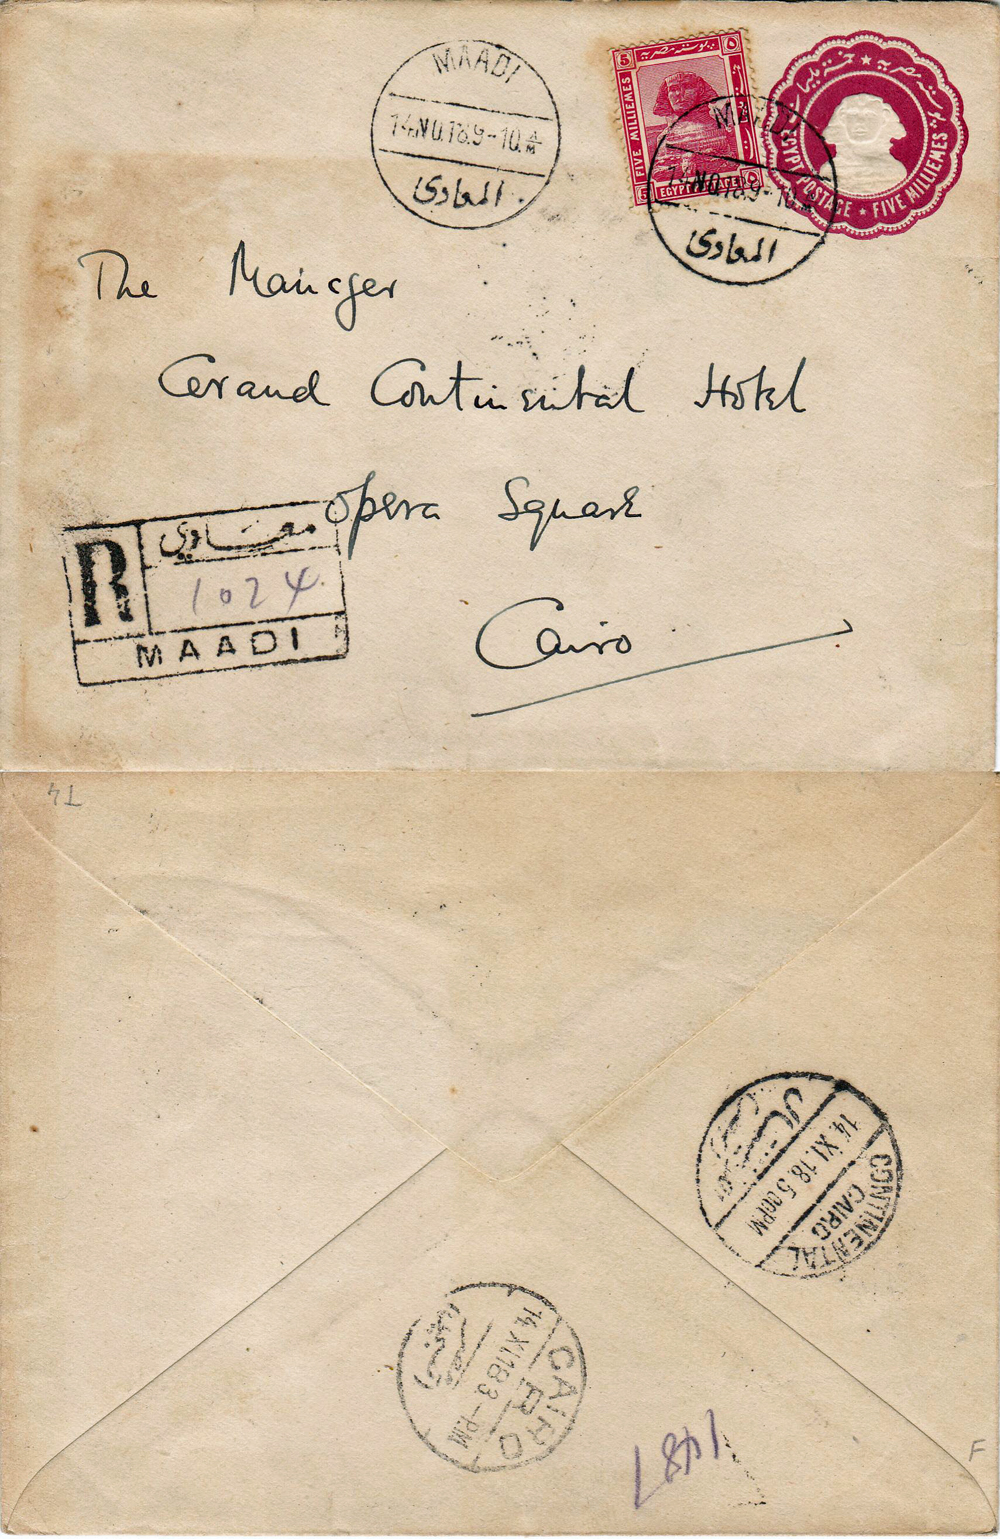 MAADI
14.NO.18.9-10.AM
المعادى
5 بوستة مصرية ٥
FIVE MILLIEMES
5 EGYPT POSTAGE ٥
MAADI
14.NO.18.9-10.AM
المعادى
EGYPT POSTAGE ★ FIVE MILLIEMES
The Manager
Grand Continental Hotel
Opera Square
Cairo
R
معادي
1024
MAADI
T4
14.XI.18.5 00PM
CONTINENTAL
CAIRO
14.XI.18 3-PM
R
CAIRO
1487
F